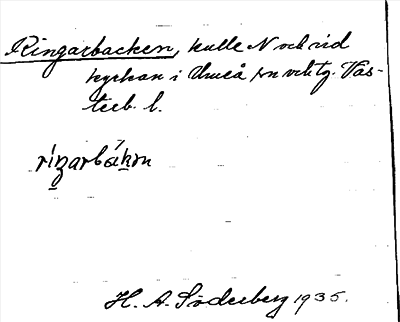 Ringarbacken, kulle N och vid
kyrkan i Umeå sn och tg. Väs-
terb. l.
ríŋarbákən
H. A. Söderberg 1935.